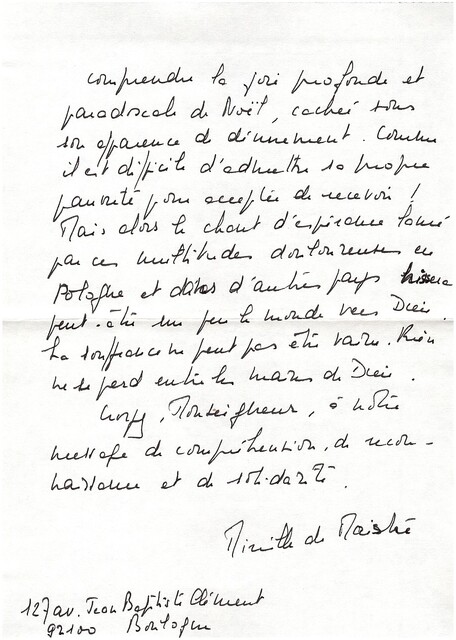 comprendre la joie profonde et
paradoxale de Noël, cachée sous
son apparence de dénuement. Comme
il est difficile d'admettre sa propre
pauvreté pour accepter de recevoir !
Mais alors le chant d'espérance lancé
par ces multitudes douloureuses en
Pologne et dans d'autres pays hissera
peut-être un peu le monde vers Dieu.
La souffrance ne peut pas être vaine. Rien
ne se perd entre les mains de Dieu.
Croyez, Monseigneur, à notre
message de compréhension, de recon-
naissance et de solidarité.
de Maistre
127 av. Jean Baptiste Clément
92100 Boulogne